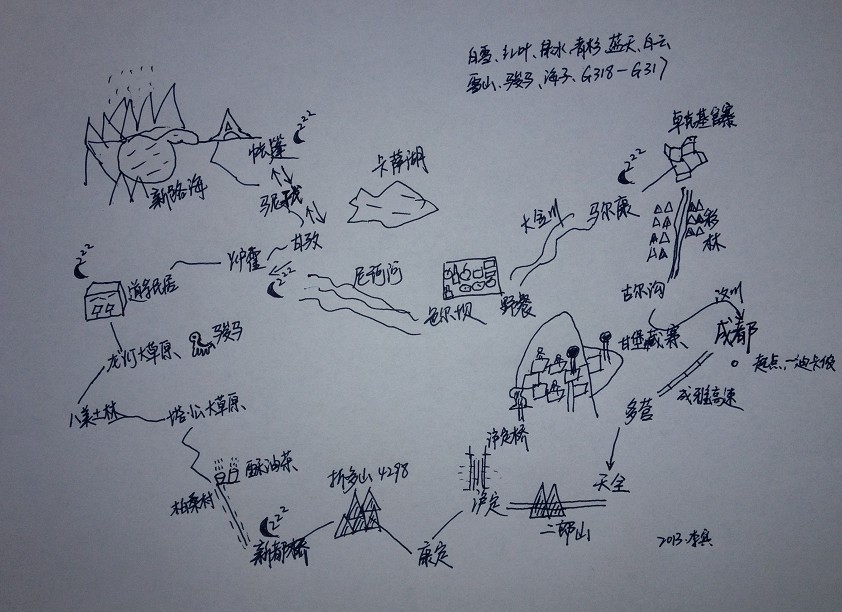 白雪、红叶、绿水、青杉、蓝天、白云
雪山、骏马、海子、G318-G317
卓克基官寨
帐篷
zzz
卡萨湖
zzz
新路海
马尼干戈
大金川
马尔康
杉林
甘孜
zzz
炉霍
zzz
尼珂河
道孚民居
色尔坝
野餐
古尔沟
汶川
甘堡藏寨
成都
起点、一油卡俊
龙灯大草原、
骏马
成雅高速
多营
八美土林
塔公大草原
泸定桥
酥油茶
折多山4298
天全
柏桑村
泸定
二郎山
zzz
新都桥
康定
2013.李兵